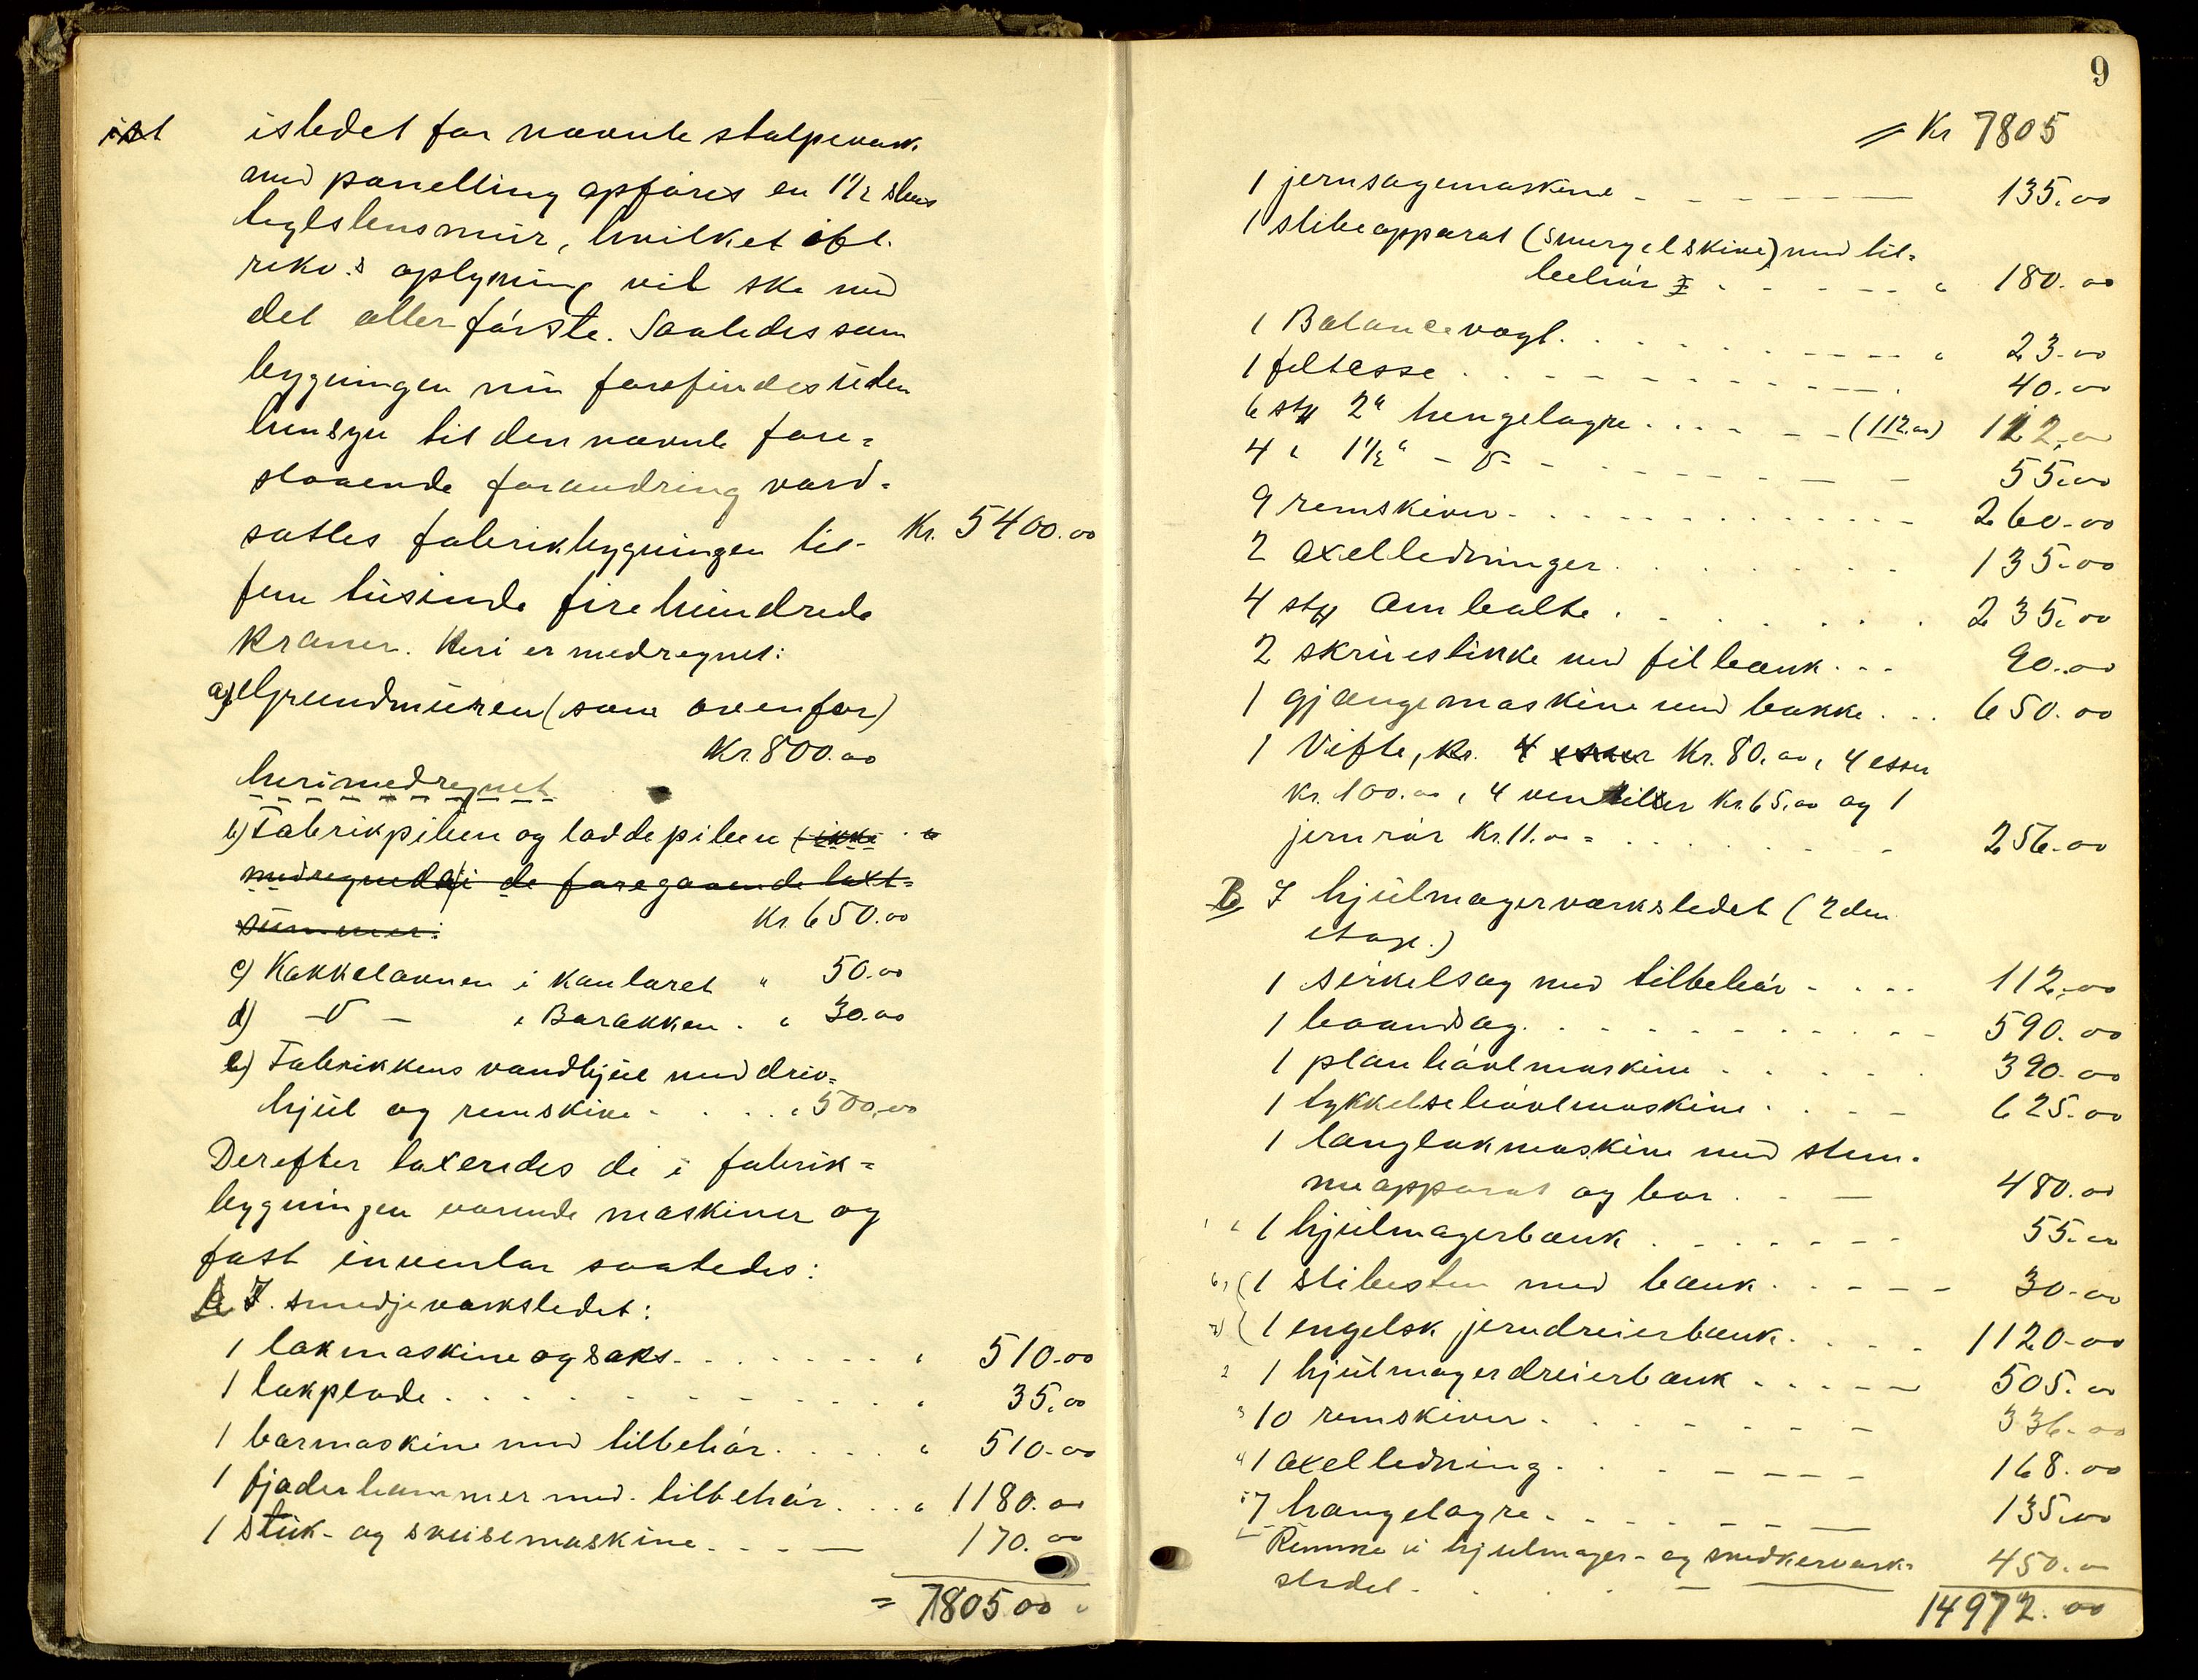 ist istedet for nævnte stolpeværk
med panelling opføres en 1 1/2 stens
teglstensmur, hvilket ifl.
rekv.s oplysning vil ske med
det allerførste. Saaledes som
bygningen nu forefindes uden
hensyn til den nævnte fore=
staaende forandring værd=
sattes fabrikbygningen til - Kr. 5400.00
fem tusinde fire hundrede
kroner. Heri er medregnet:
a) Grundmuren (som ovenfor)
Kr. 800.00
heri medregnet
b) Fabrikpiben og loddepiben (ikke
medregnede i de foregaaende taxt=
summer: Kr. 650.00
c) Kakkelovnen i kontoret " 50.00
d) - " - i Barakken . " 30.00
e) Fabrikkens vandhjul med driv=
hjul og remskive - . . . " 500.00
Derefter taxeredes de i fabrik=
bygningen værende maskiner og
fast inventar saaledes:
A I. smedjeværkstedet:
1 lokmaskine og saks . . . . . . " 510.00
1 lokplade . . . . . . . . " 35.00
1 bormaskine med tilbehør . . . . " 510.00
1 fjæderhammer med tilbehør . . . " 1180.00
1 stuk- og sveisemaskine . . . — 170.00
= 7805 00
9
= Kr 7805
1 jernsagemaskine - - - - - — 135.00
1 slibeapparat (smergelskive) med til=
behør . - - - - " 180.00
1 Balancevægt . . . . . . - - - " 23.00
1 feltesse . . . . . . . . . — . 40.00
6 stk 2" hengelagre . . . . - - (112.00) 112.00
4 " 1 1/2" - " - . . . . . — - 55.00
9 remskiver - . . . . . . . . . - 260.00
2 axelledninger . . . . . . . - 135.00
4 stk ambolte . . . . . . . 235.00
2 skruestikke med filbænk . . . 90.00
1 gjængemaskine med bakke . . . 650.00
1 Vifte, kr. 4 esser Kr. 80.00, 4 esser
kr. 100.00, 4 ventiler Kr. 65.00 og 1
jernrør Kr. 11.00 = . . . . . - 256.00
B I hjulmagerværkstedet (2den
etage.)
1 sirkelsag med tilbehør - . . . 112.00
1 baandsag . . . . . . . . . . - 590.00
1 planhøvlmaskine . . . . . . 390.00
1 tykkelsehøvlmaskine . . . . - 625.00
1 langlokmaskine med stem=
meapparat og bor . . — 480.00
1 hjulmagerbænk . . . . . . - 55.00
6) (1 slibesten med bænk . . . - - 30.00
7) (1 engelsk jerndreierbænk . . . . 1120.00
2 1 hjulmagerdreierbænk . . . . . 505.00
3 10 remskiver . . . . . . . . 336.00
4 1 axelledning . . . - - - - 168.00
5 7 hængelagre . . . . . . — 135.00
Remme i hjulmager- og snedkerværk= 450.00
stedet . . . —
14972.00